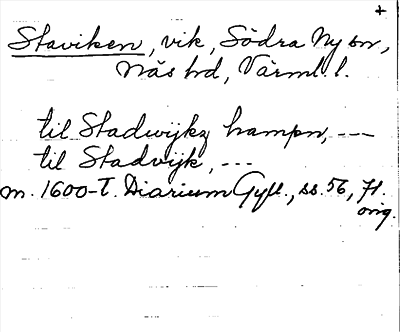 +
Staviken, vik, Södra Ny sn,
Näs hd, Värml. l.
til Stadwijkz hampn, ---
til Stadvijk, ---
m. 1600-t. Diarium Gyll., ss. 56, 71.
orig.